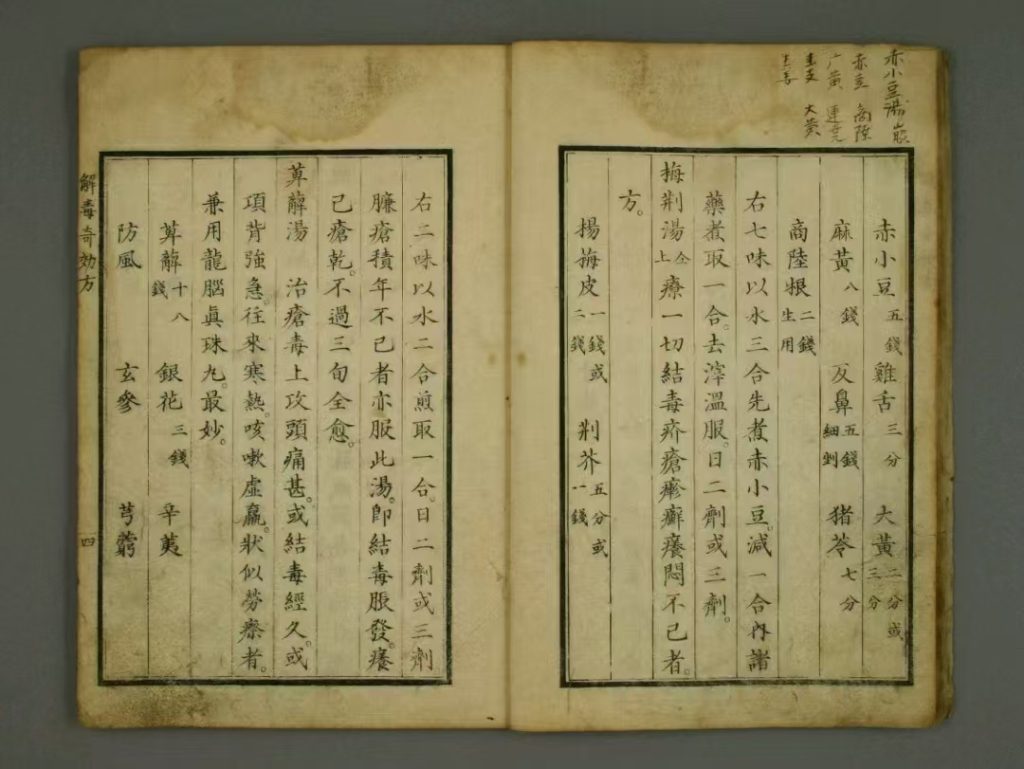 赤小豆湯
赤豆 商陸
广黄 連壳
大黄
赤小豆五錢 雞舌三分 大黃二分或三分
麻黃八錢 反鼻五錢細剉 猪苓七分
商陸根二錢生用
右七味以水三合先煮赤小豆。減一合內諸
藥煮取一合。去滓溫服。日二劑或三劑。
梅荆湯仝上 療一切結毒疥瘡瘮癬癢悶不已者。
方。
揚梅皮一錢或二錢 荆芥五分或一錢
右二味以水二合煎取一合。日二劑或三劑
臁瘡積年不已者亦服此湯。即結毒脹發。癢
已瘡乾。不過三旬全愈。
萆薢湯 治瘡毒上攻頭痛甚。或結毒經久。或
項背強急。往來寒熱。咳嗽虛羸。狀似勞瘵者。
兼用龍腦眞珠丸。最妙。
萆薢十八錢 銀花三錢 辛荑
防風 玄參 芎藭
解毒奇効方 四